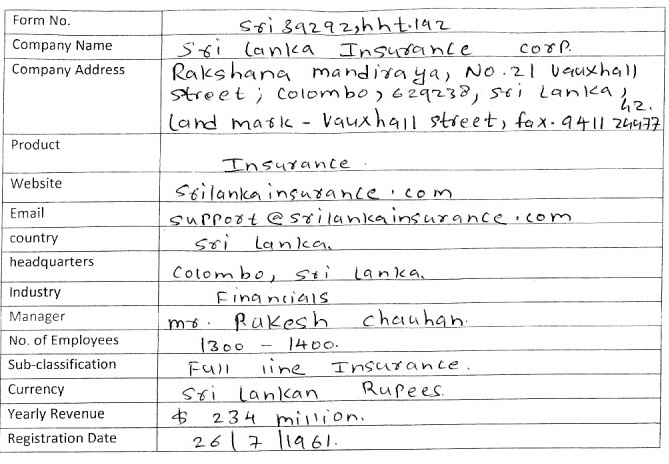 Form No. sri 39292,hht.192
Company Name Sri Lanka Insurance corp.
Company Address Rakshana mandiraya, No.21 vauxhall
street; Colombo, 629238, sri Lanka,
Land mark - Vauxhall street, fax. 9411 2497742.
Product
Insurance.
Website
srilankainsurance.com
Email
support@srilankainsurance.com
country sri Lanka.
headquarters
Colombo, sri Lanka.
Industry Financials
Manager mr. Rakesh chauhan.
No. of Employees 1300 - 1400.
Sub-classification Full line Insurance.
Currency Sri Lankan Rupees.
Yearly Revenue $ 234 million.
Registration Date 26/7/1961.